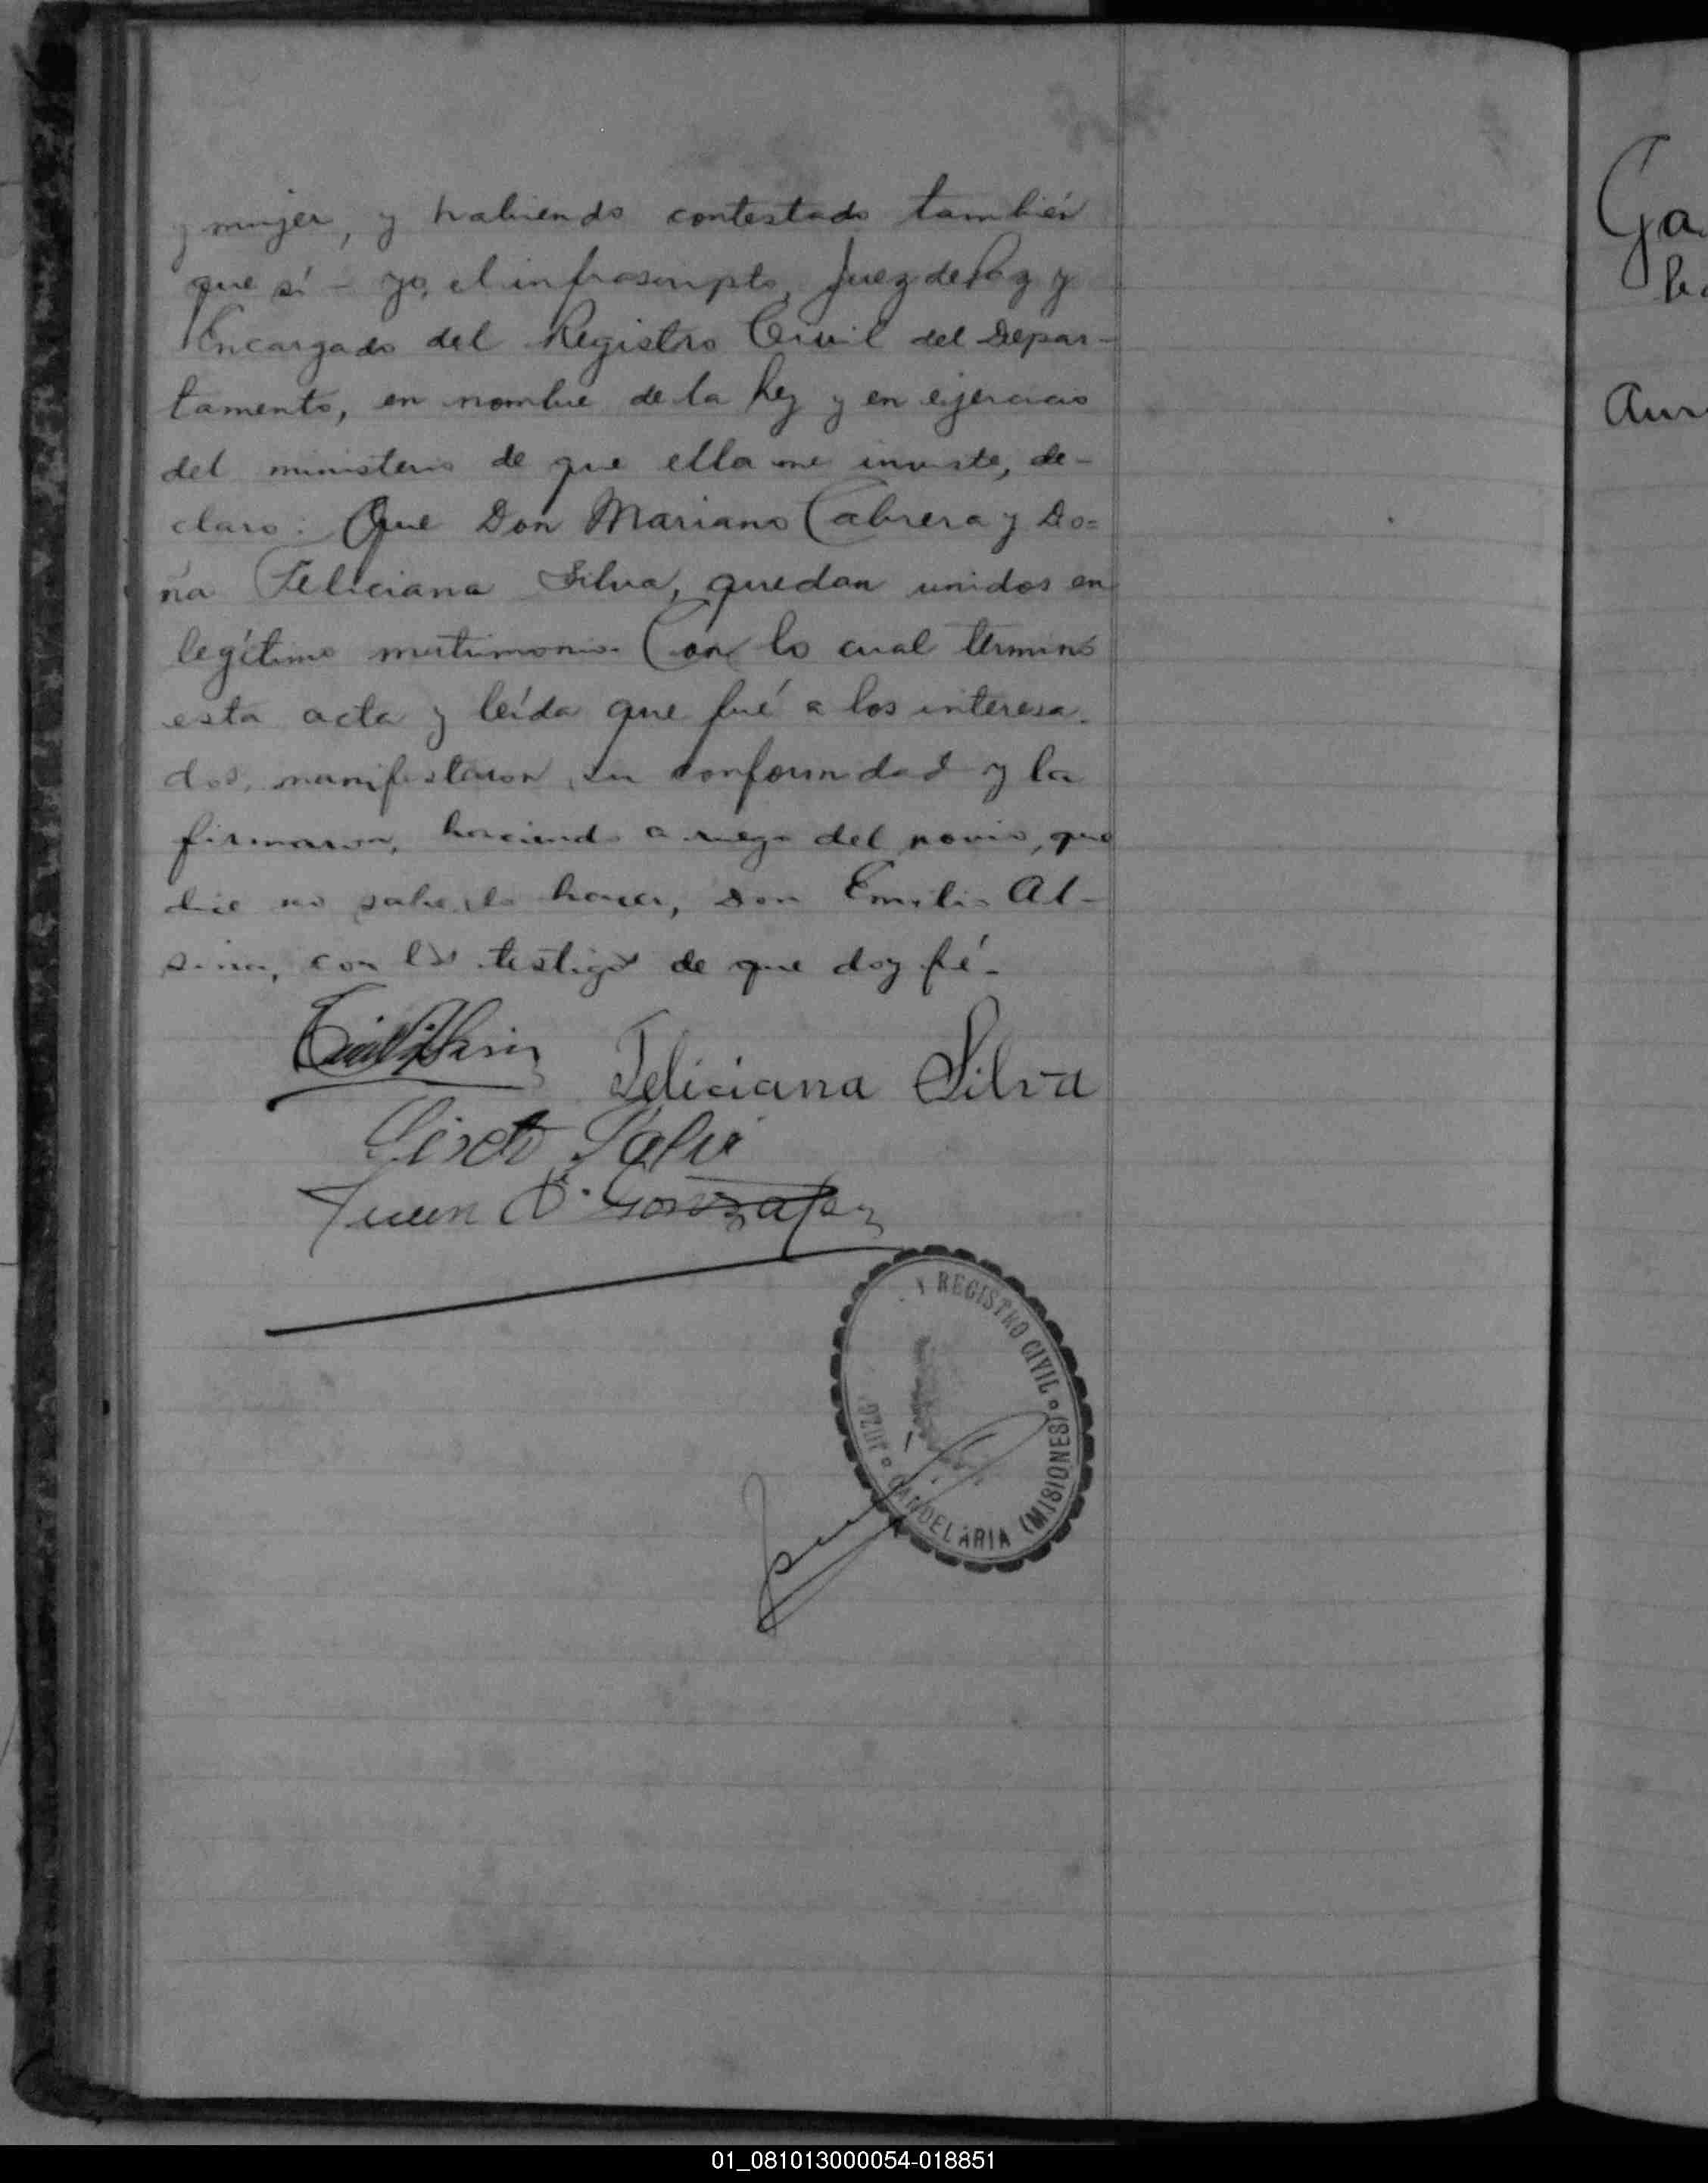 y mujer, y habiendo contestado también
que sí - yo, el infrascripto, Juez de Paz y
Encargado del Registro Civil del Depar-
tamento, en nombre de la Ley y en ejercicio
del ministerio de que ella me inviste, de-
claro: Que Don Mariano Cabrera y Do=
ña Feliciana Silva, quedan unidos en
legítimo matrimonio. Con lo cual terminó
esta acta y leída que fué a los interesa-
dos, manifestaron su conformidad y la
firmaron, haciendo a ruego del novio, que
dice no saberlo hacer, Don Emilio Al-
sina, con los testigos de que doy fé.-
Emilio Alsina Feliciana Silva
Juan González
Y REGISTRO CIVIL
JUZG
CANDELARIA (MISIONES)
Ga
Aur
01_081013000054-018851